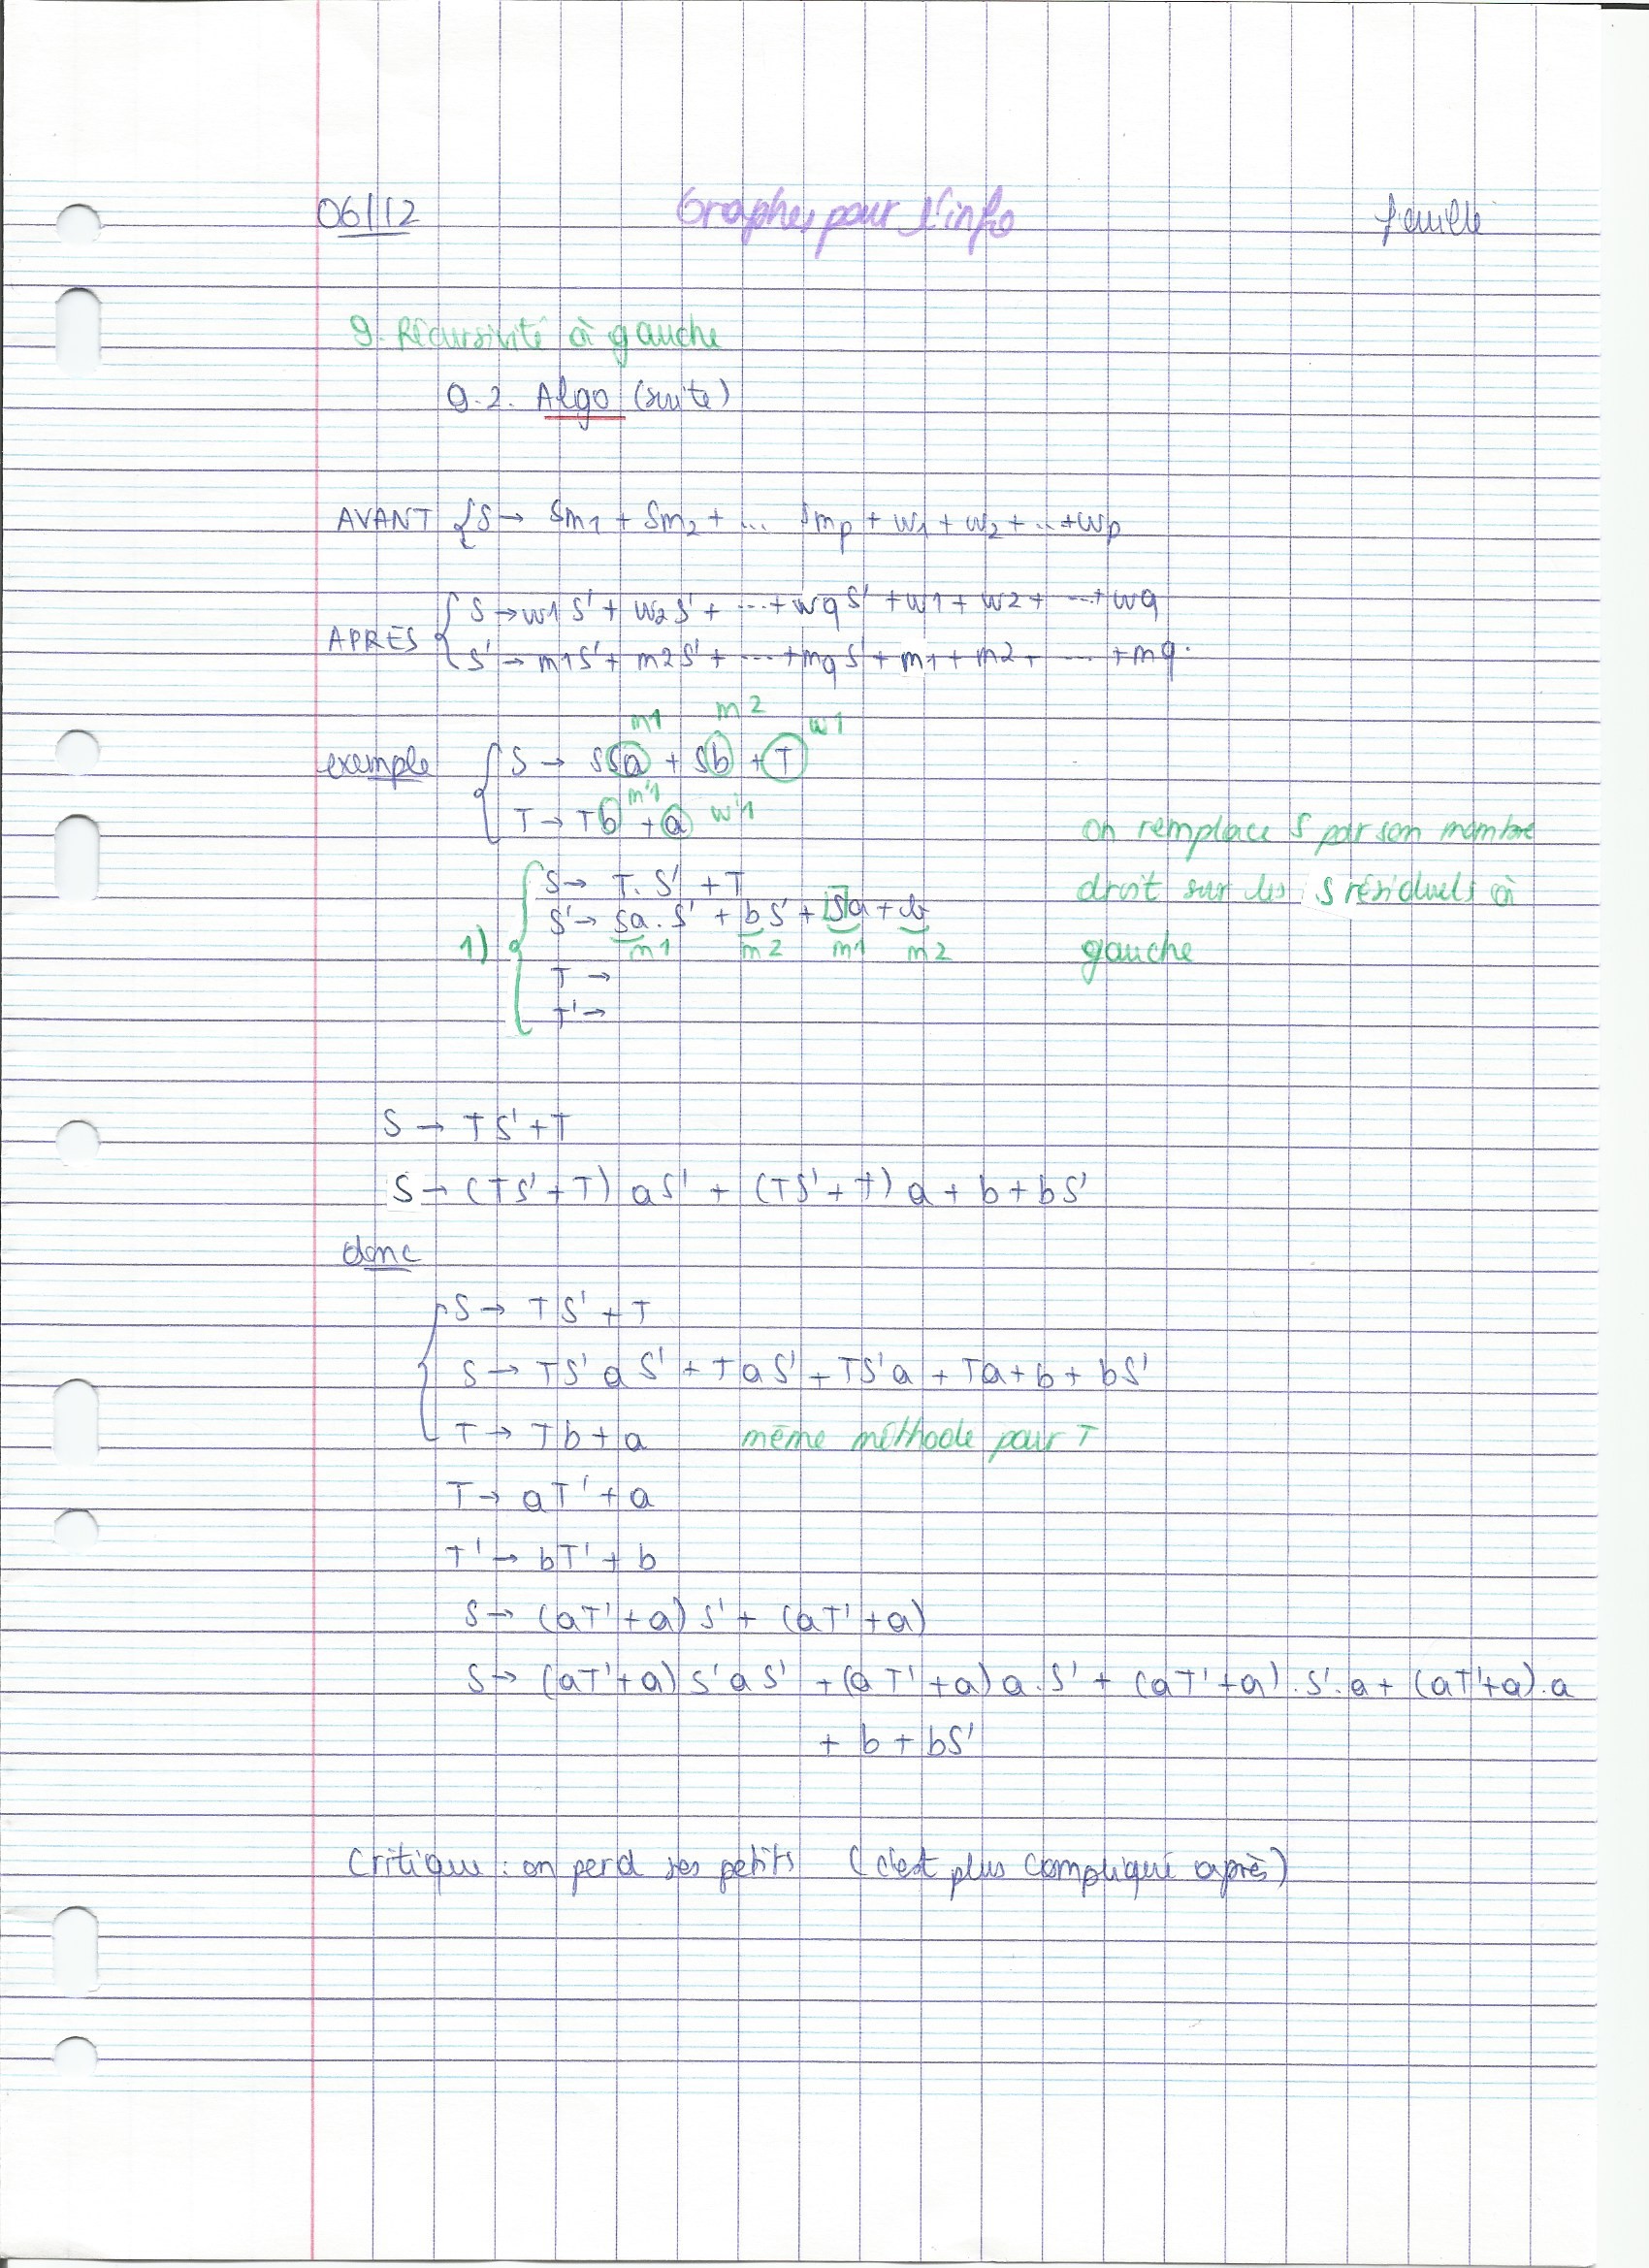 06/12 Graphes pour l'info feuille
9. Récursivité à gauche
9.2. Algo (suite)
AVANT { S → Sm1 + Sm2 + ... Smp + w1 + w2 + ... + wp
APRES { S → w1 S' + w2 S' + ... + wq S' + w1 + w2 + ... + wq
S' → m1S' + m2S' + ... + mq S' + m1 + m2 + ... + mq.
m1 m2 w1
exemple { S → SSa + Sb + T
m'1
T → Tb + a w'1
on remplace S par son membre
droit sur les S résiduels à
gauche
1) { S → T. S' + T
S' → Sa. S' + bS' + Sa + b
m1 m2 m1 m2
T →
T' →
S → TS' + T
S → (TS' + T) aS' + (TS' + T) a + b + bS'
donc
{ S → TS' + T
S → TS' a S' + TaS' + TS'a + Ta + b + bS'
T → Tb + a même méthode pour T
T → aT' + a
T' → bT' + b
S → (aT' + a) S' + (aT' + a)
S → (aT' + a) S' a S' + (aT' + a) a. S' + (aT' + a). S'. a + (aT' + a). a
+ b + bS'
Critique : on perd ses petits (c'est plus compliqué après)